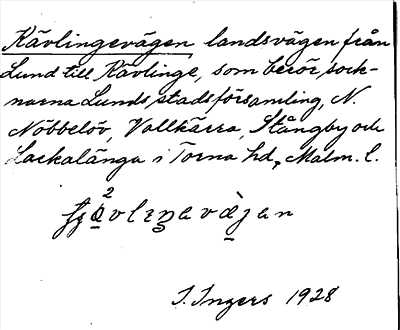 Kävlingevägen landsvägen från
Lund till Kävlinge, som berör sock-
narna Lunds stadsförsamling, N.
Nöbbelöv, Vallkärra, Stångby och
Lackalänga i Torna hd, Malm. l.
I. Ingers 1928